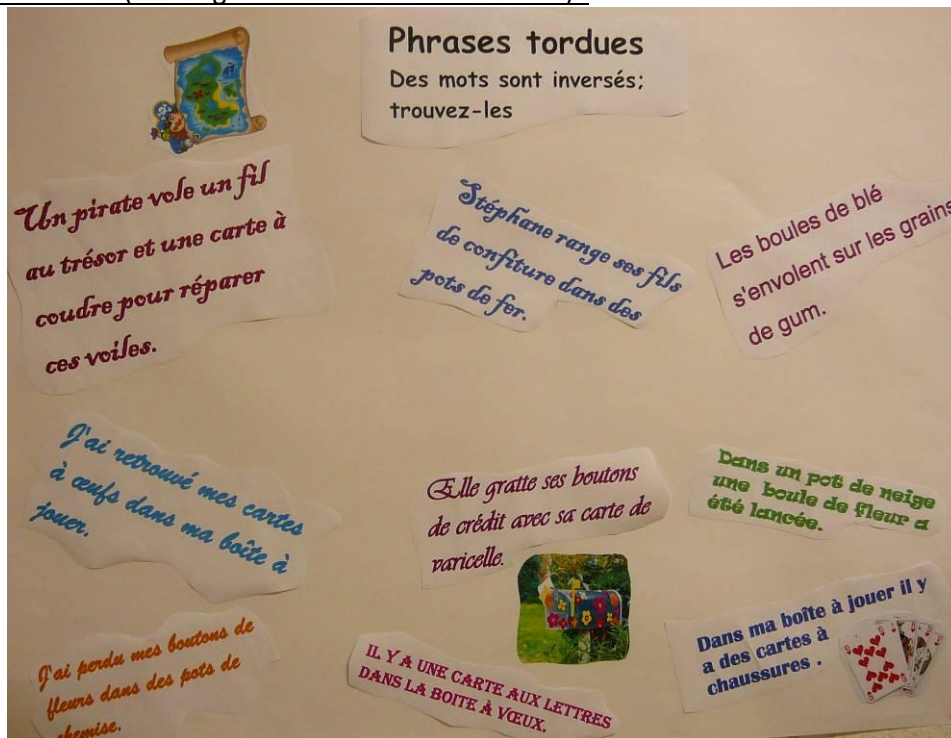 Phrases tordues
Des mots sont inversés;
trouvez-les
Un pirate vole un fil
au trésor et une carte à
coudre pour réparer
ces voiles.
Stéphane range ses fils
de confiture dans des
pots de fer.
Les boules de blé
s'envolent sur les grains
de gum.
J'ai retrouvé mes cartes
à œufs dans ma boîte à
jouer.
Elle gratte ses boutons
de crédit avec sa carte de
varicelle.
Dans un pot de neige
une boule de fleur a
été lancée.
J'ai perdu mes boutons de
fleurs dans des pots de
chemise.
IL Y A UNE CARTE AUX LETTRES
DANS LA BOITE À VŒUX.
Dans ma boîte à jouer il y
a des cartes à
chaussures .